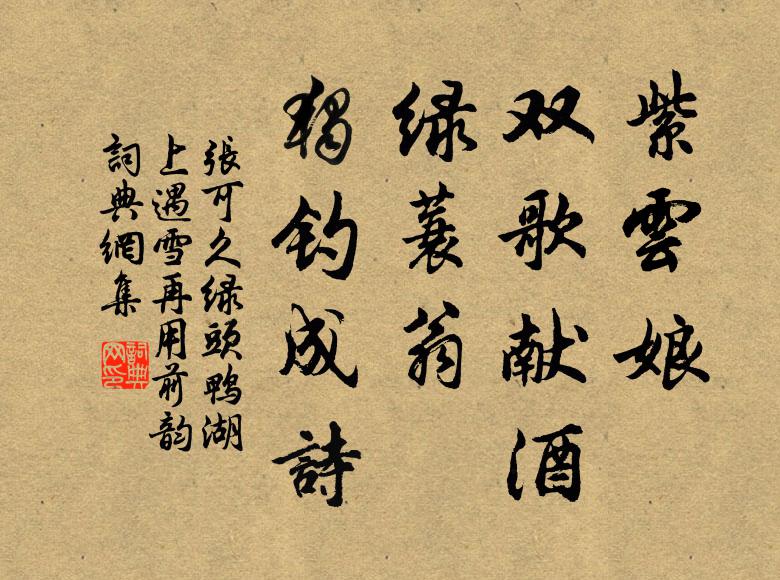 紫雲娘
双歌献酒
緑蓑翁
独钓成詩
張可久緑頭鸭湖
上遇雪再用前韵
詞典網集
詞典
网印